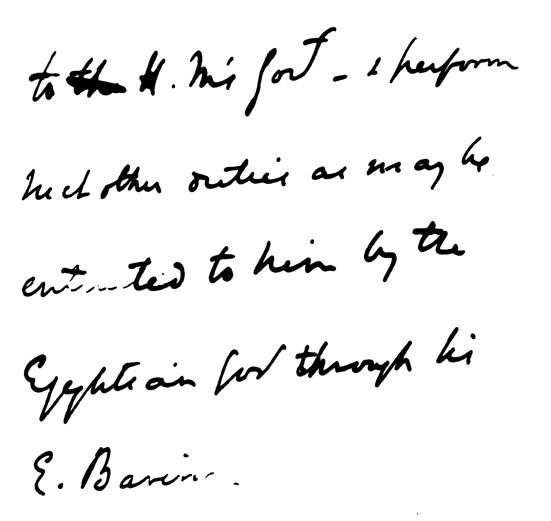 to the H. M's Govt - & perform
such other duties as may be
entrusted to him by the
Egyptian Govt through Sir
E. Baring.